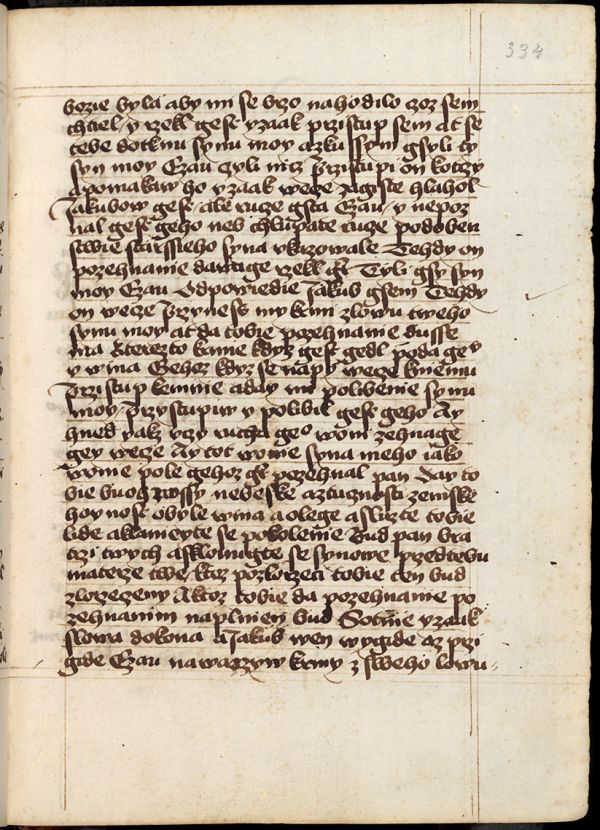 334
bozie byla aby mi se brzo nahodilo czoz sem
chtiel / y rzekl gest yzaak przistup sem at se
tebe dotknu synu moy a zkussym gsyli ty
syn moy Ezau czyli nicz Przistupi on k otczy
a pomakaw ho yzaak wece zagiste hlahol
Jakubow gest / ale rucze gsta Ezau / y nepoz
nal gest geho neb chlupate rucze podoben
stwie starssieho syna vkazowale Tehdy on
pozehnanie dawage rzekl gt Tyli gsy syn
moy Ezau Odpowiedie Jakub gsem Tehdy
on wece Przynes my krmi z lowu tweho
synu moy at da tobie pozehnanie dusse
ma kterezto krmie kdyz gest gedl poda geo
y wina Gehoz kdyz se napi wece k niemu
Przistup ke mnie a day mi polibenie synu
moy / Przystupiw y polibil gest geho Ay
hned yakz vzy rucha geo woni zehnage
gey wece Ay tot wonie syna meho iako
wonie pole gehoz gt pozehnal pan Day to
bie buog z rossy nebeske a z tucznosti zemske
hoynost obyle wina a olege a sluzte tobie
lide a klaneyte se pokolenie Bud pan bra
trzi twych a sklonugte se synowe przed tebu
materze twe / ktoz pozlorzeci tobie ten bud
zlorzeczeny A ktoz tobie da pozehnanie po
zehnanim naplnien bud Sotnie yzaak
slowa dokona a Jakub wen wygide az przi
gide Ezau nawarzyw krmy z sweho lowu